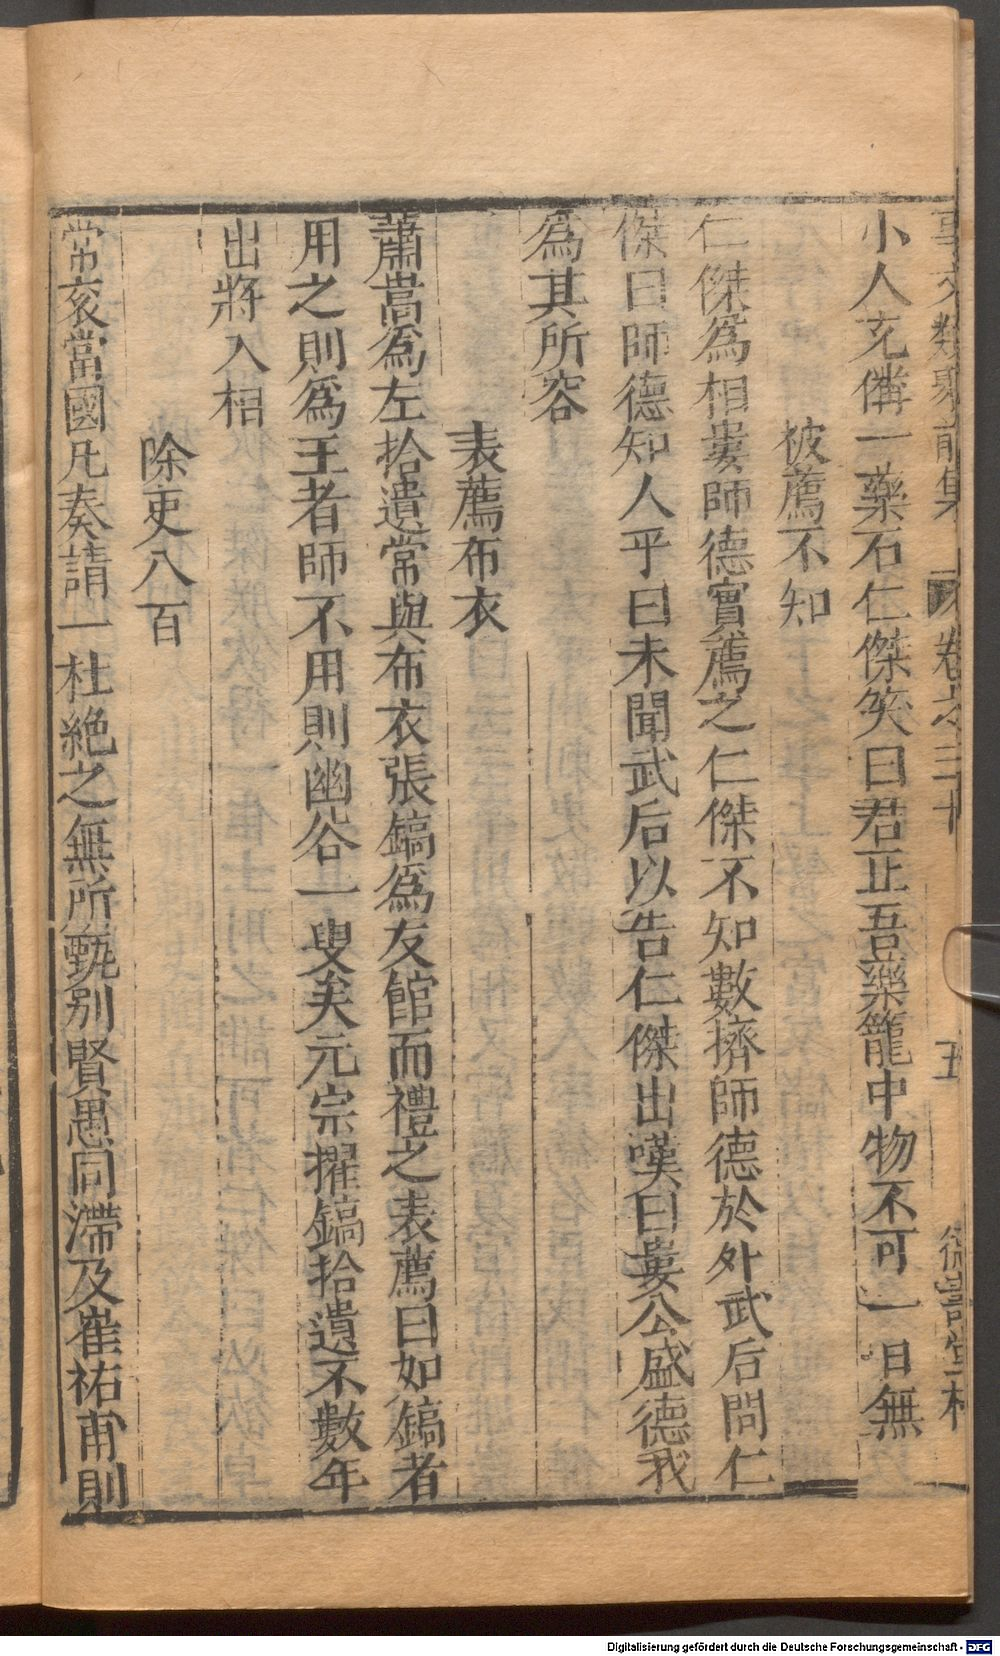 事文類聚前集 卷之三十 五
小人充備一藥石仁傑笑曰君正吾藥籠中物不可一日無
被薦不知
仁傑爲相婁師德實薦之仁傑不知數擠師德於外武后問仁
傑曰師德知人乎曰未聞武后以告仁傑出嘆曰婁公盛德我
爲其所容
表薦布衣
蕭嵩爲左拾遺常與布衣張鎬爲友館而禮之表薦曰如鎬者
用之則爲王者師不用則幽谷一叟矣元宗擢鎬拾遺不數年
出將入相
除吏八百
常袞當國凡奏請一杜絶之無所甄别賢愚同滯及崔祐甫則
Digitalisierung gefördert durch die Deutsche Forschungsgemeinschaft - DFG